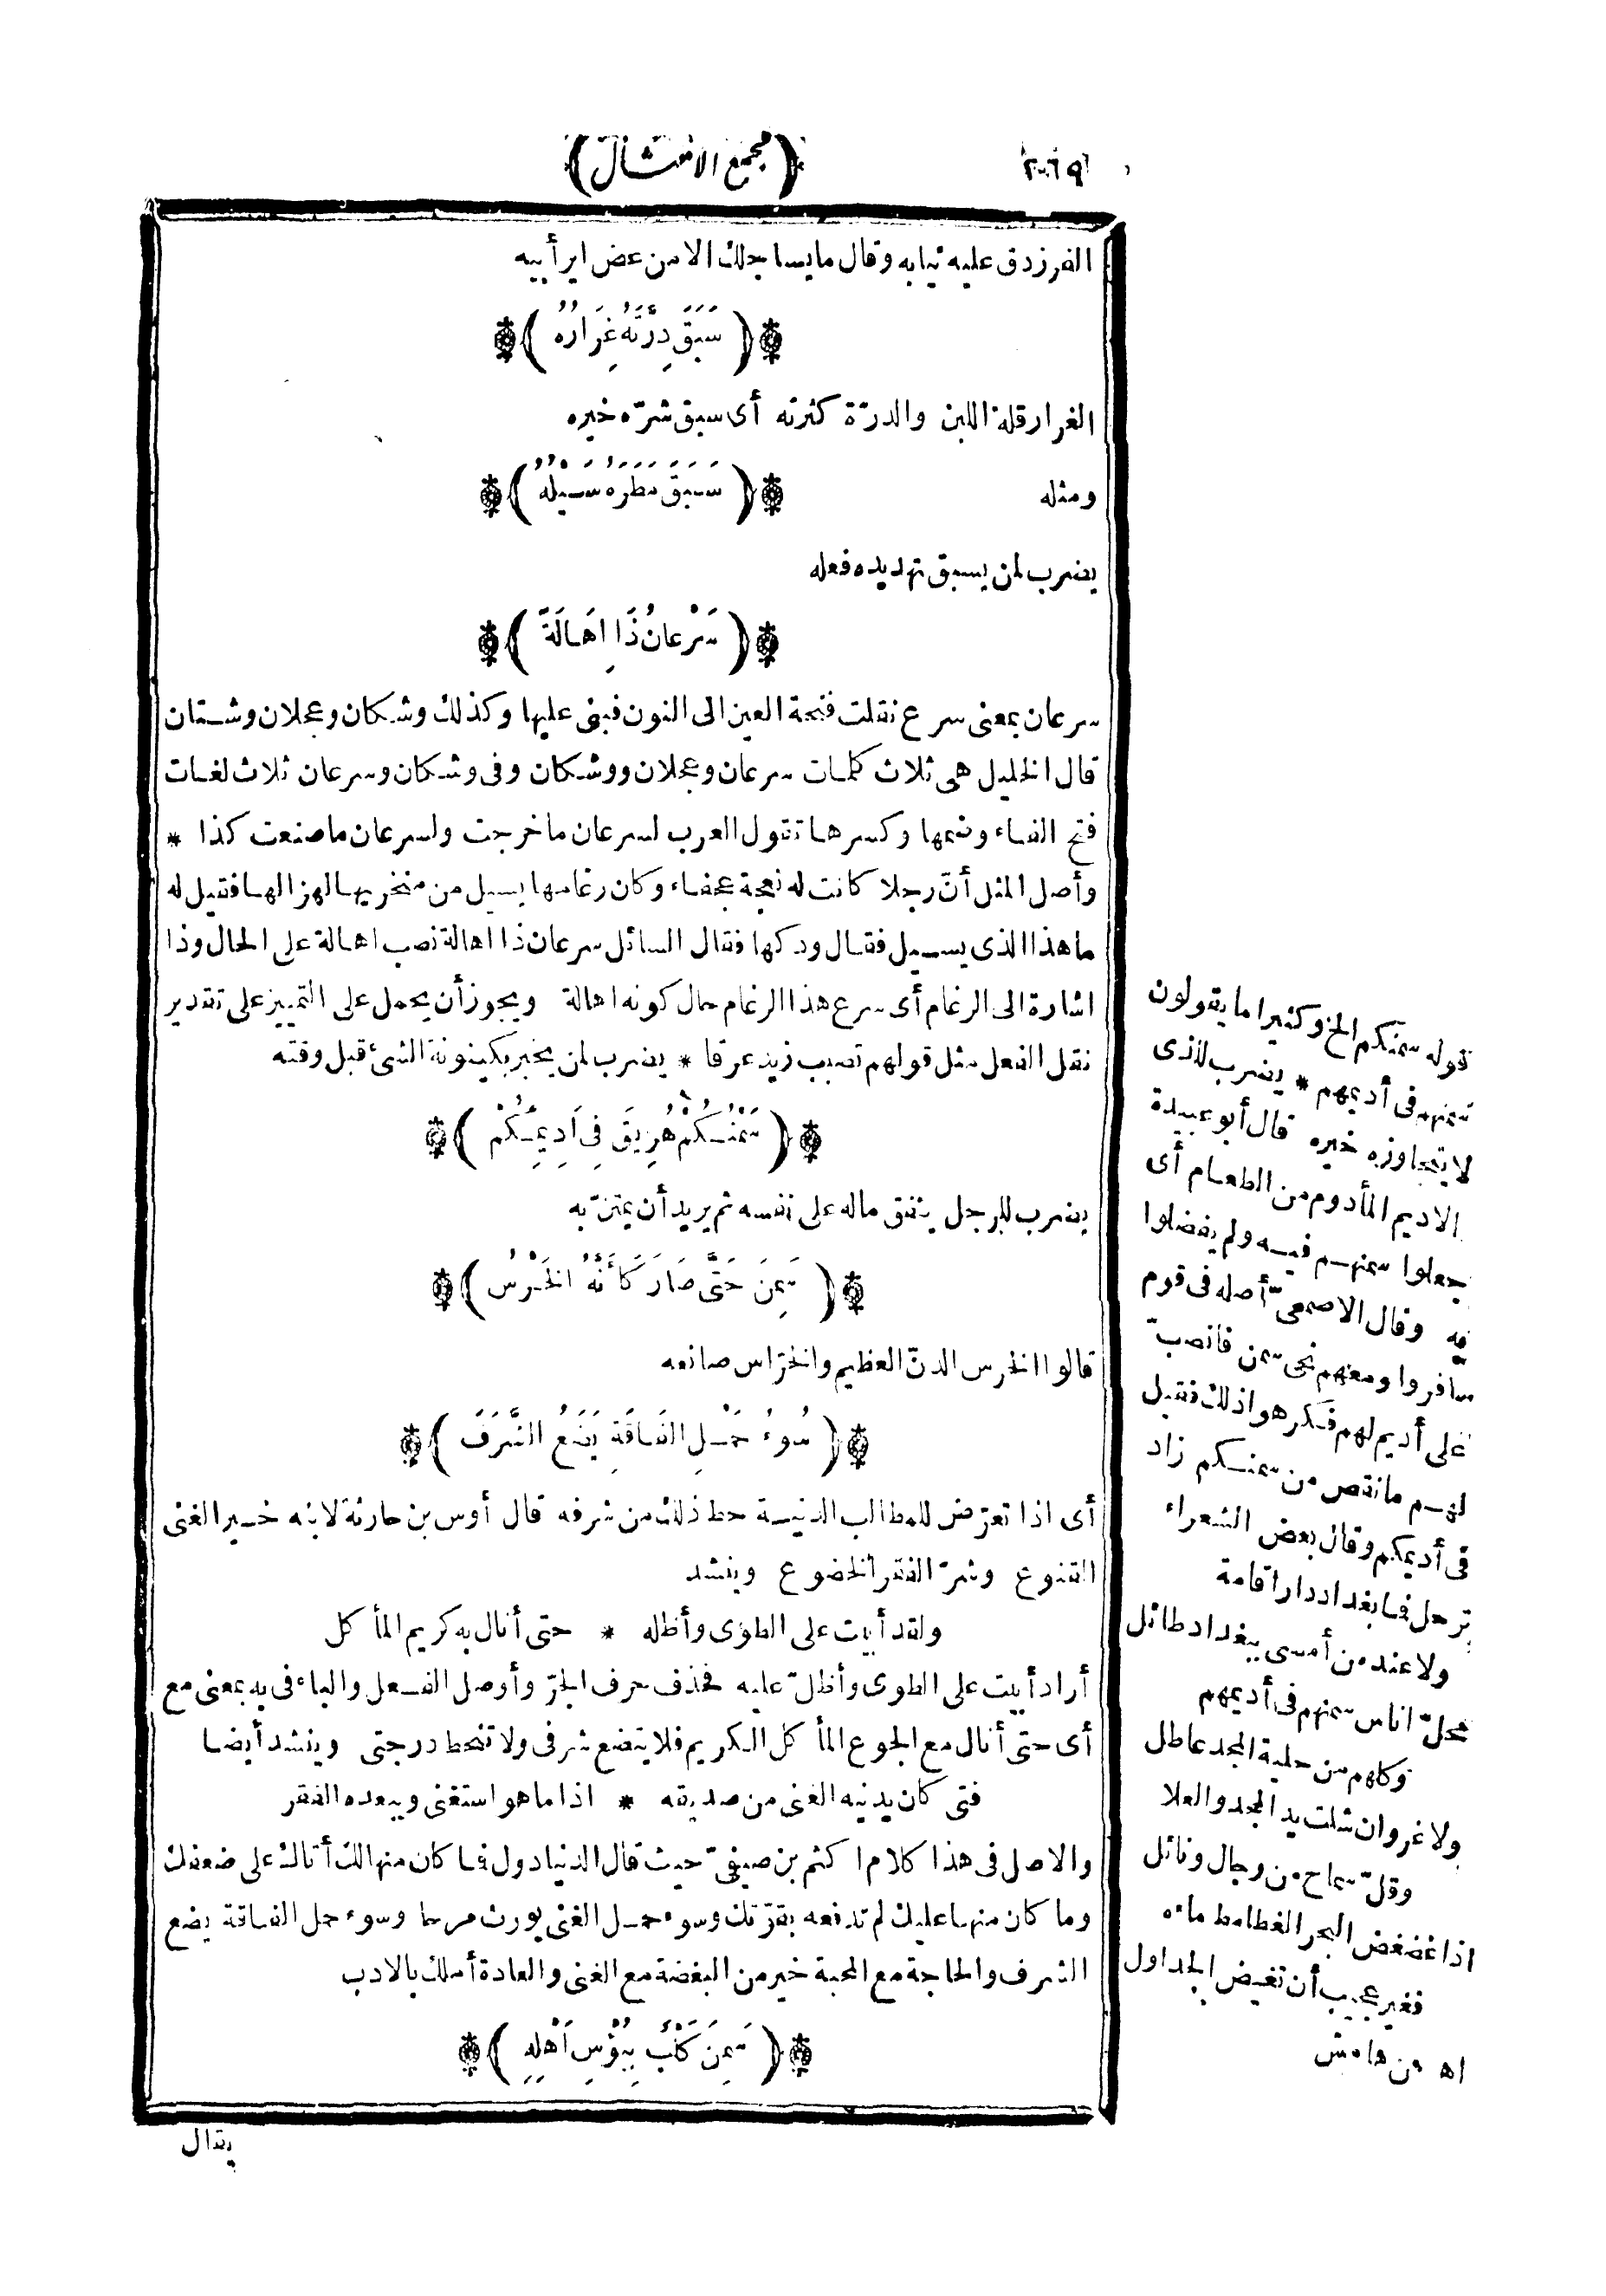 (مجمع الامثال)
٢٦٩
الفرزدق عليه ثيابه وقال ما يساجلك الا من عض اير أبيه
(سَبَقَ دِرَّتَهُ غِرَارُهُ)
الغرار قلة اللبن والدرّة كثرته أى سبق شرّه خيره
ومثله (سَبَقَ مَطَرَهُ سَيْلُهُ)
يضرب لمن يسبق تهديده فعله
(سَرْعَانُ ذَا اِهَالَةً)
سرعان بمعنى سرع نقلت فتحة العين الى النون فبنى عليها وكذلك وشكان وعجلان وشتان
قال الخليل هى ثلاث كلمات سرعان وعجلان ووشكان وفى وشكان وسرعان ثلاث لغات
فتح الفاء وضمها وكسرها تقول العرب لسرعان ما خرجت ولسرعان ما صنعت كذا *
وأصل المثل أنّ رجلا كانت له نعجة عجفاء وكان رغامها يسيل من منخريها لهزالها فقيل له
ما هذا الذى يسيل فقال ودكها فقال السائل سرعان ذا اهالة نصب اهالة على الحال وذا
اشارة الى الرغام أى سرع هذا الرغام حال كونه اهالة ويجوز أن يحمل على التمييز على تقدير
نقل الفعل مثل قولهم تصبب زيد عرقا * يضرب لمن يخبر بكينونة الشئ قبل وقته
(سَمْنُكُمْ هُرِيقَ فِى اَدِيمِكُمْ)
يضرب للرجل ينفق ماله على نفسه ثم يريد أن يمتنّ به
(سَمِنَ حَتَّى صَارَ كَأَنَّهُ الخَرْسُ)
قالوا الخرس الدنّ العظيم والخرّاس صانعه
(سُوءُ حَمْلِ الفَاقَةِ يَضَعُ الشَّرَفَ)
أى اذا تعرّض للمطالب الدنيئة حط ذلك من شرفه قال أوس بن حارثة لابنه خير الغنى
القنوع وشرّ الفقر الخضوع وينشد
ولقد أبيت على الطوى وأظله * حتى أنال به كريم المأكل
أراد أبيت على الطوى وأظلّ عليه فحذف حرف الجرّ وأوصل الفعل والباء فى به بمعنى مع
أى حتى أنال مع الجوع المأكل الكريم فلا يتضع شرفى ولا تنحط درجتى وينشد أيضا
فتى كان يدنيه الغنى من صديقه * اذا ما هو استغنى ويبعده الفقر
والاصل فى هذا كلام اكثم بن صيفىّ حيث قال الدنيا دول فما كان منها لك أتاك على ضعفك
وما كان منها عليك لم تدفعه بقوّتك وسوء حمل الغنى يورث مرحا وسوء حمل الفاقة يضع
الشرف والحاجة مع المحبة خير من البغضة مع الغنى والعادة أملك بالادب
(سَمِنَ كَلْبٌ بِبُؤْسِ اَهْلِهِ)
يقال
قوله سمنكم الخ وكثيرا ما يقولون
سمنهم فى أديمهم * يضرب للذى
لا يتجاوزه خيره قال أبو عبيدة
الاديم المأدوم من الطعام أى
جعلوا سمنهم فيه ولم يفضلوا
به وقال الاصمعىّ أصله فى قوم
سافروا ومعهم نحى سمن فانصبّ
على أديم لهم فكرهوا ذلك فقيل
لهم ما نقص من سمنكم زاد
فى أديمكم وقال بعض الشعراء
ترحل فما بغداد دار اقامة
ولا عند من أمسى ببغداد طائل
محلّ اناس سمنهم فى أديمهم
وكلهم من حلية المجد عاطل
ولا غرو ان شلت يد المجد والعلا
وقلّ سماح من رجال ونائل
اذا غضغض البحر الغطامط ماءه
فغير عجيب أن تغيض الجداول
اه من هامش